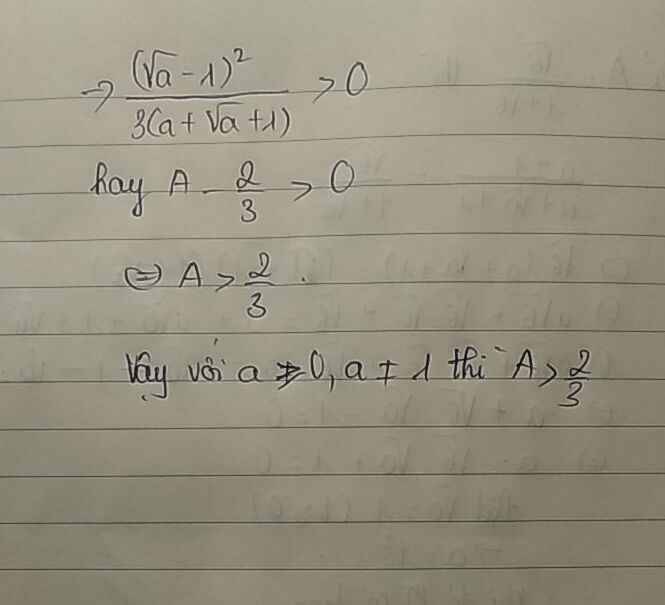 → (√a - 1)² / 3(a + √a + 1) > 0
hay A - 2/3 > 0
⇔ A > 2/3.
Vậy với a ≥ 0, a ≠ 1 thì A > 2/3